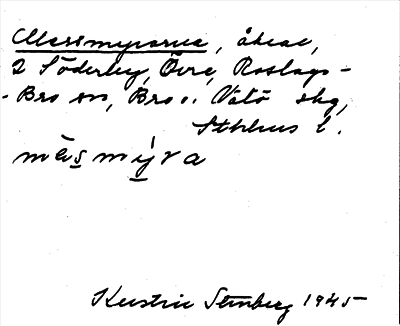 Marsmyrarna, åkrar,
2 Söderby, Övre, Roslags-
-Bro sn, Bro o. Vätö skg,
Sthlms l.
mā̀smýra
Kerstin Stenberg 1945